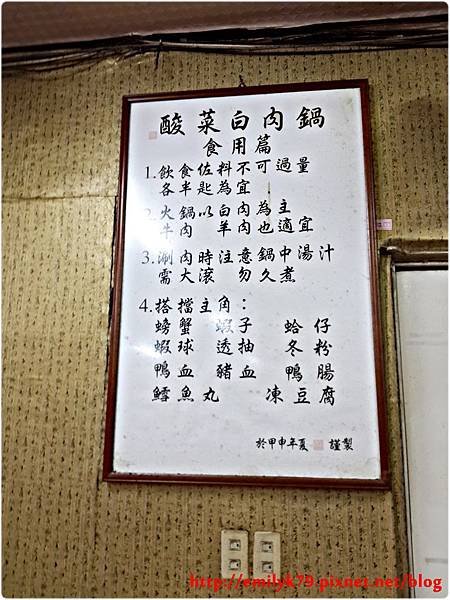 酸菜白肉鍋
食用篇
1.飲食佐料不可過量
各半匙為宜
2.火鍋以白肉為主
牛肉 羊肉也適宜
3.涮肉時注意鍋中湯汁
需大滾 勿久煮
4.搭擋主角：
螃蟹 蝦子 蛤仔
蝦球 透抽 冬粉
鴨血 豬血 鴨腸
鱈魚丸 凍豆腐
於甲申年夏 謹製
http://emilyk79.pixnet.net/blog